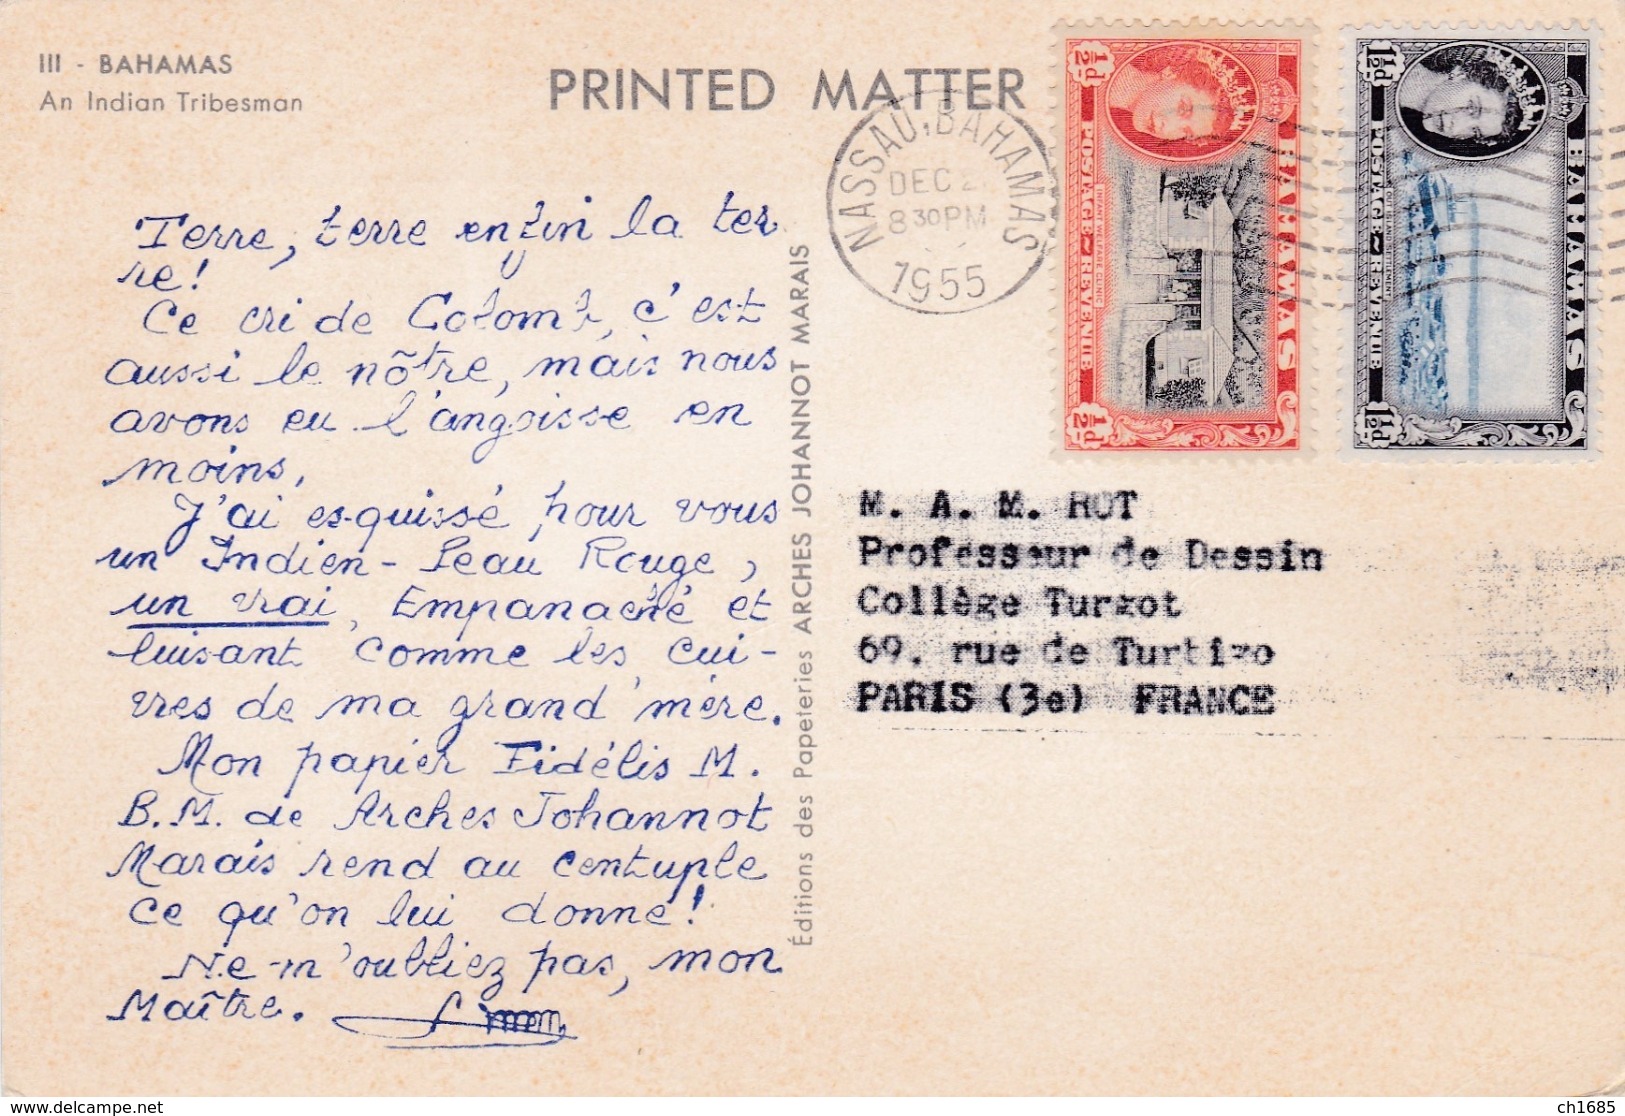 III - BAHAMAS
An Indian Tribesman
PRINTED MATTER
NASSAU, BAHAMAS
DEC 2
8 30 PM
1955
½d
½d
BAHAMAS
POSTAGE & REVENUE
INFANT WELFARE CLINIC
1½d
1½d
BAHAMAS
POSTAGE & REVENUE
OUT ISLAND SETTLEMENT
Terre, terre enfin la ter
re!
Ce cri de Colomb, c'est
aussi le nôtre, mais nous
avons eu l'angoisse en
moins.
J'ai esquissé pour vous
un Indien-Peau Rouge,
un vrai, Empanaché et
luisant comme les cui-
vres de ma grand'mère.
Mon papier Fidélis M.
B.M. de Arches Johannot
Marais rend au centuple
ce qu'on lui donne!
Ne-m'oubliez pas, mon
Maître.
Éditions des Papeteries ARCHES JOHANNOT MARAIS
M. A. M. ROT
Professeur de Dessin
Collège Turgot
69, rue de Turbigo
PARIS (3e) FRANCE
delcampe.net
ch1685